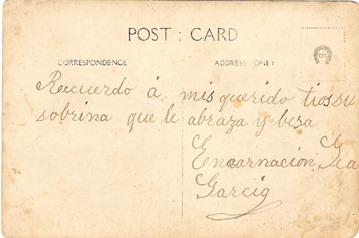 POST : CARD
CORRESPONDENCE ADDRESS ONLY
Recuerdo á mis querido tios su
sobrina que le abraza y besa
Encarnación Gea
Garcia